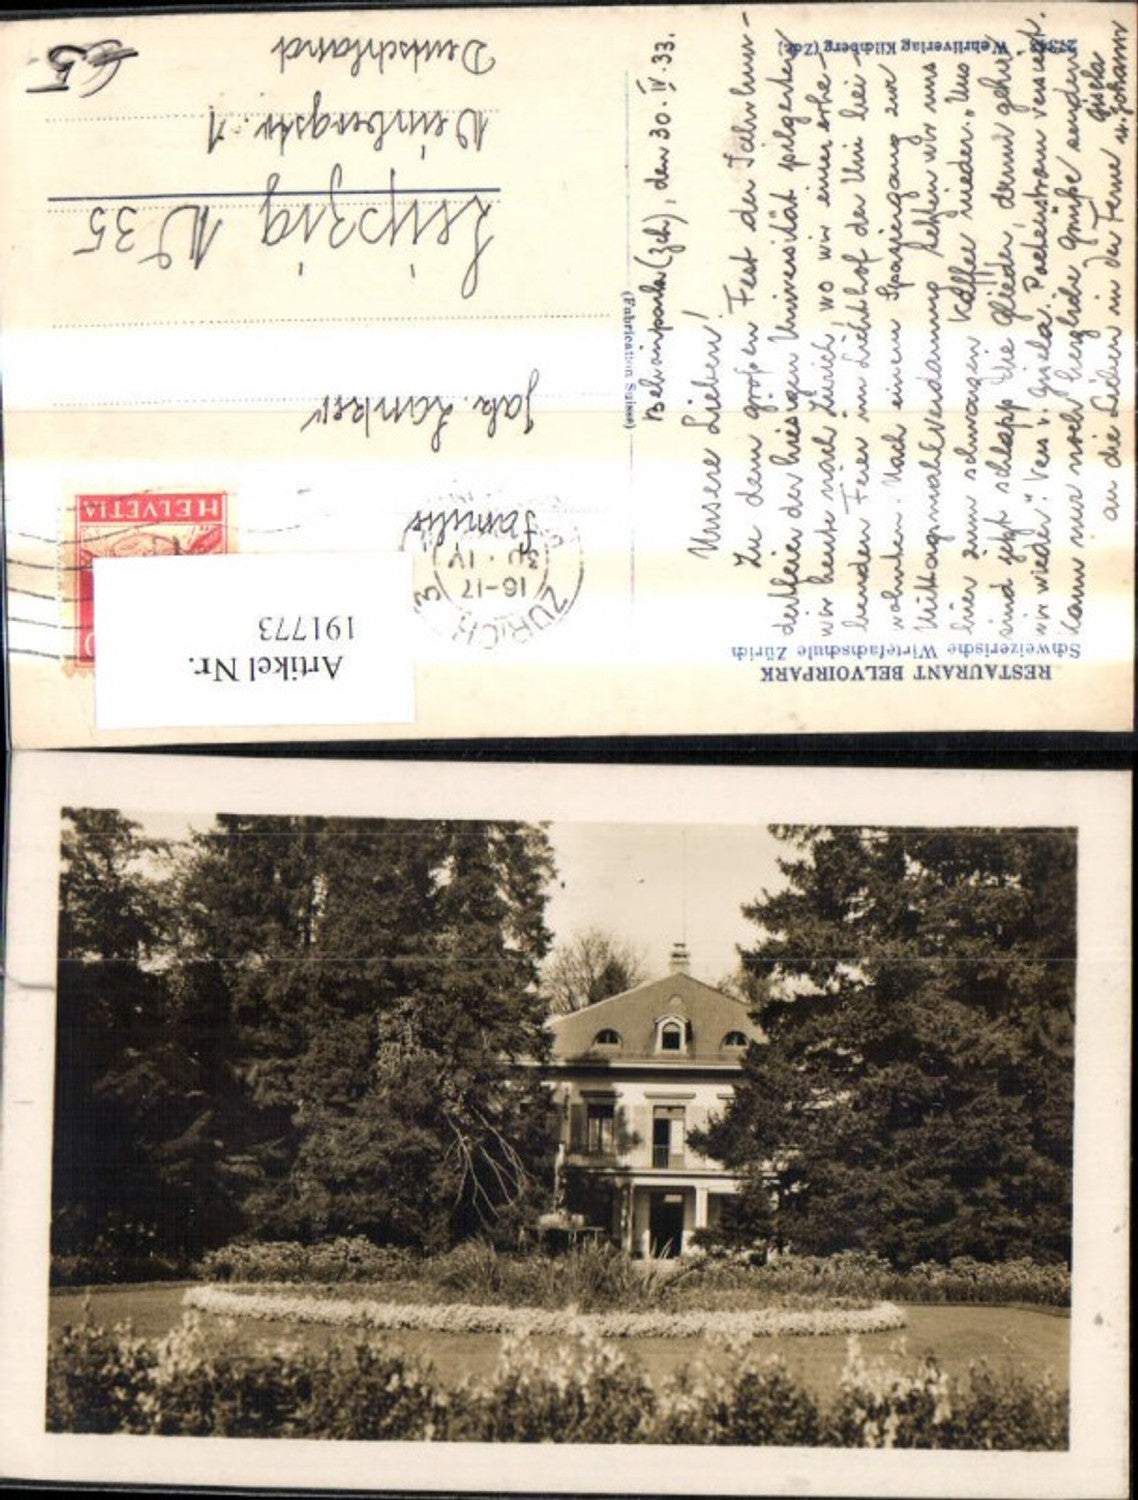 RESTAURANT BELVOIRPARK
Schweizerische Wirtefachschule Zürich
Belvoirpark (Zch), den 30. IV. 33.
Unsere Lieben!
Zu dem großen Fest der Jahrhun-
dertfeier der hiesigen Universität pilgerten
wir heute nach Zürich, wo wir einer erhe-
benden Feier im Lichthof der Uni bei-
wohnten. Nach einem Spaziergang zur
Mittagsmahlverdauung ließen wir uns
hier zum schwarzen Kaffee nieder. "Uns
sind jetzt schlapp die Glieder, drum gehn
wir wieder." Vers v. Gisela.
kann nur noch herzliche Grüße senden
an die Lieben in der Ferne
Gisela
u. Johann
(Fabrication Suisse)
27313 Wehrliverlag Kilchberg (Zch.)
HELVETIA
ZÜRICH
30. IV
16-17
3
Familie
Jak. Lanker
Leipzig N 35
Weinbergstr. 1
Deutschland
€5
Artikel Nr.
191773